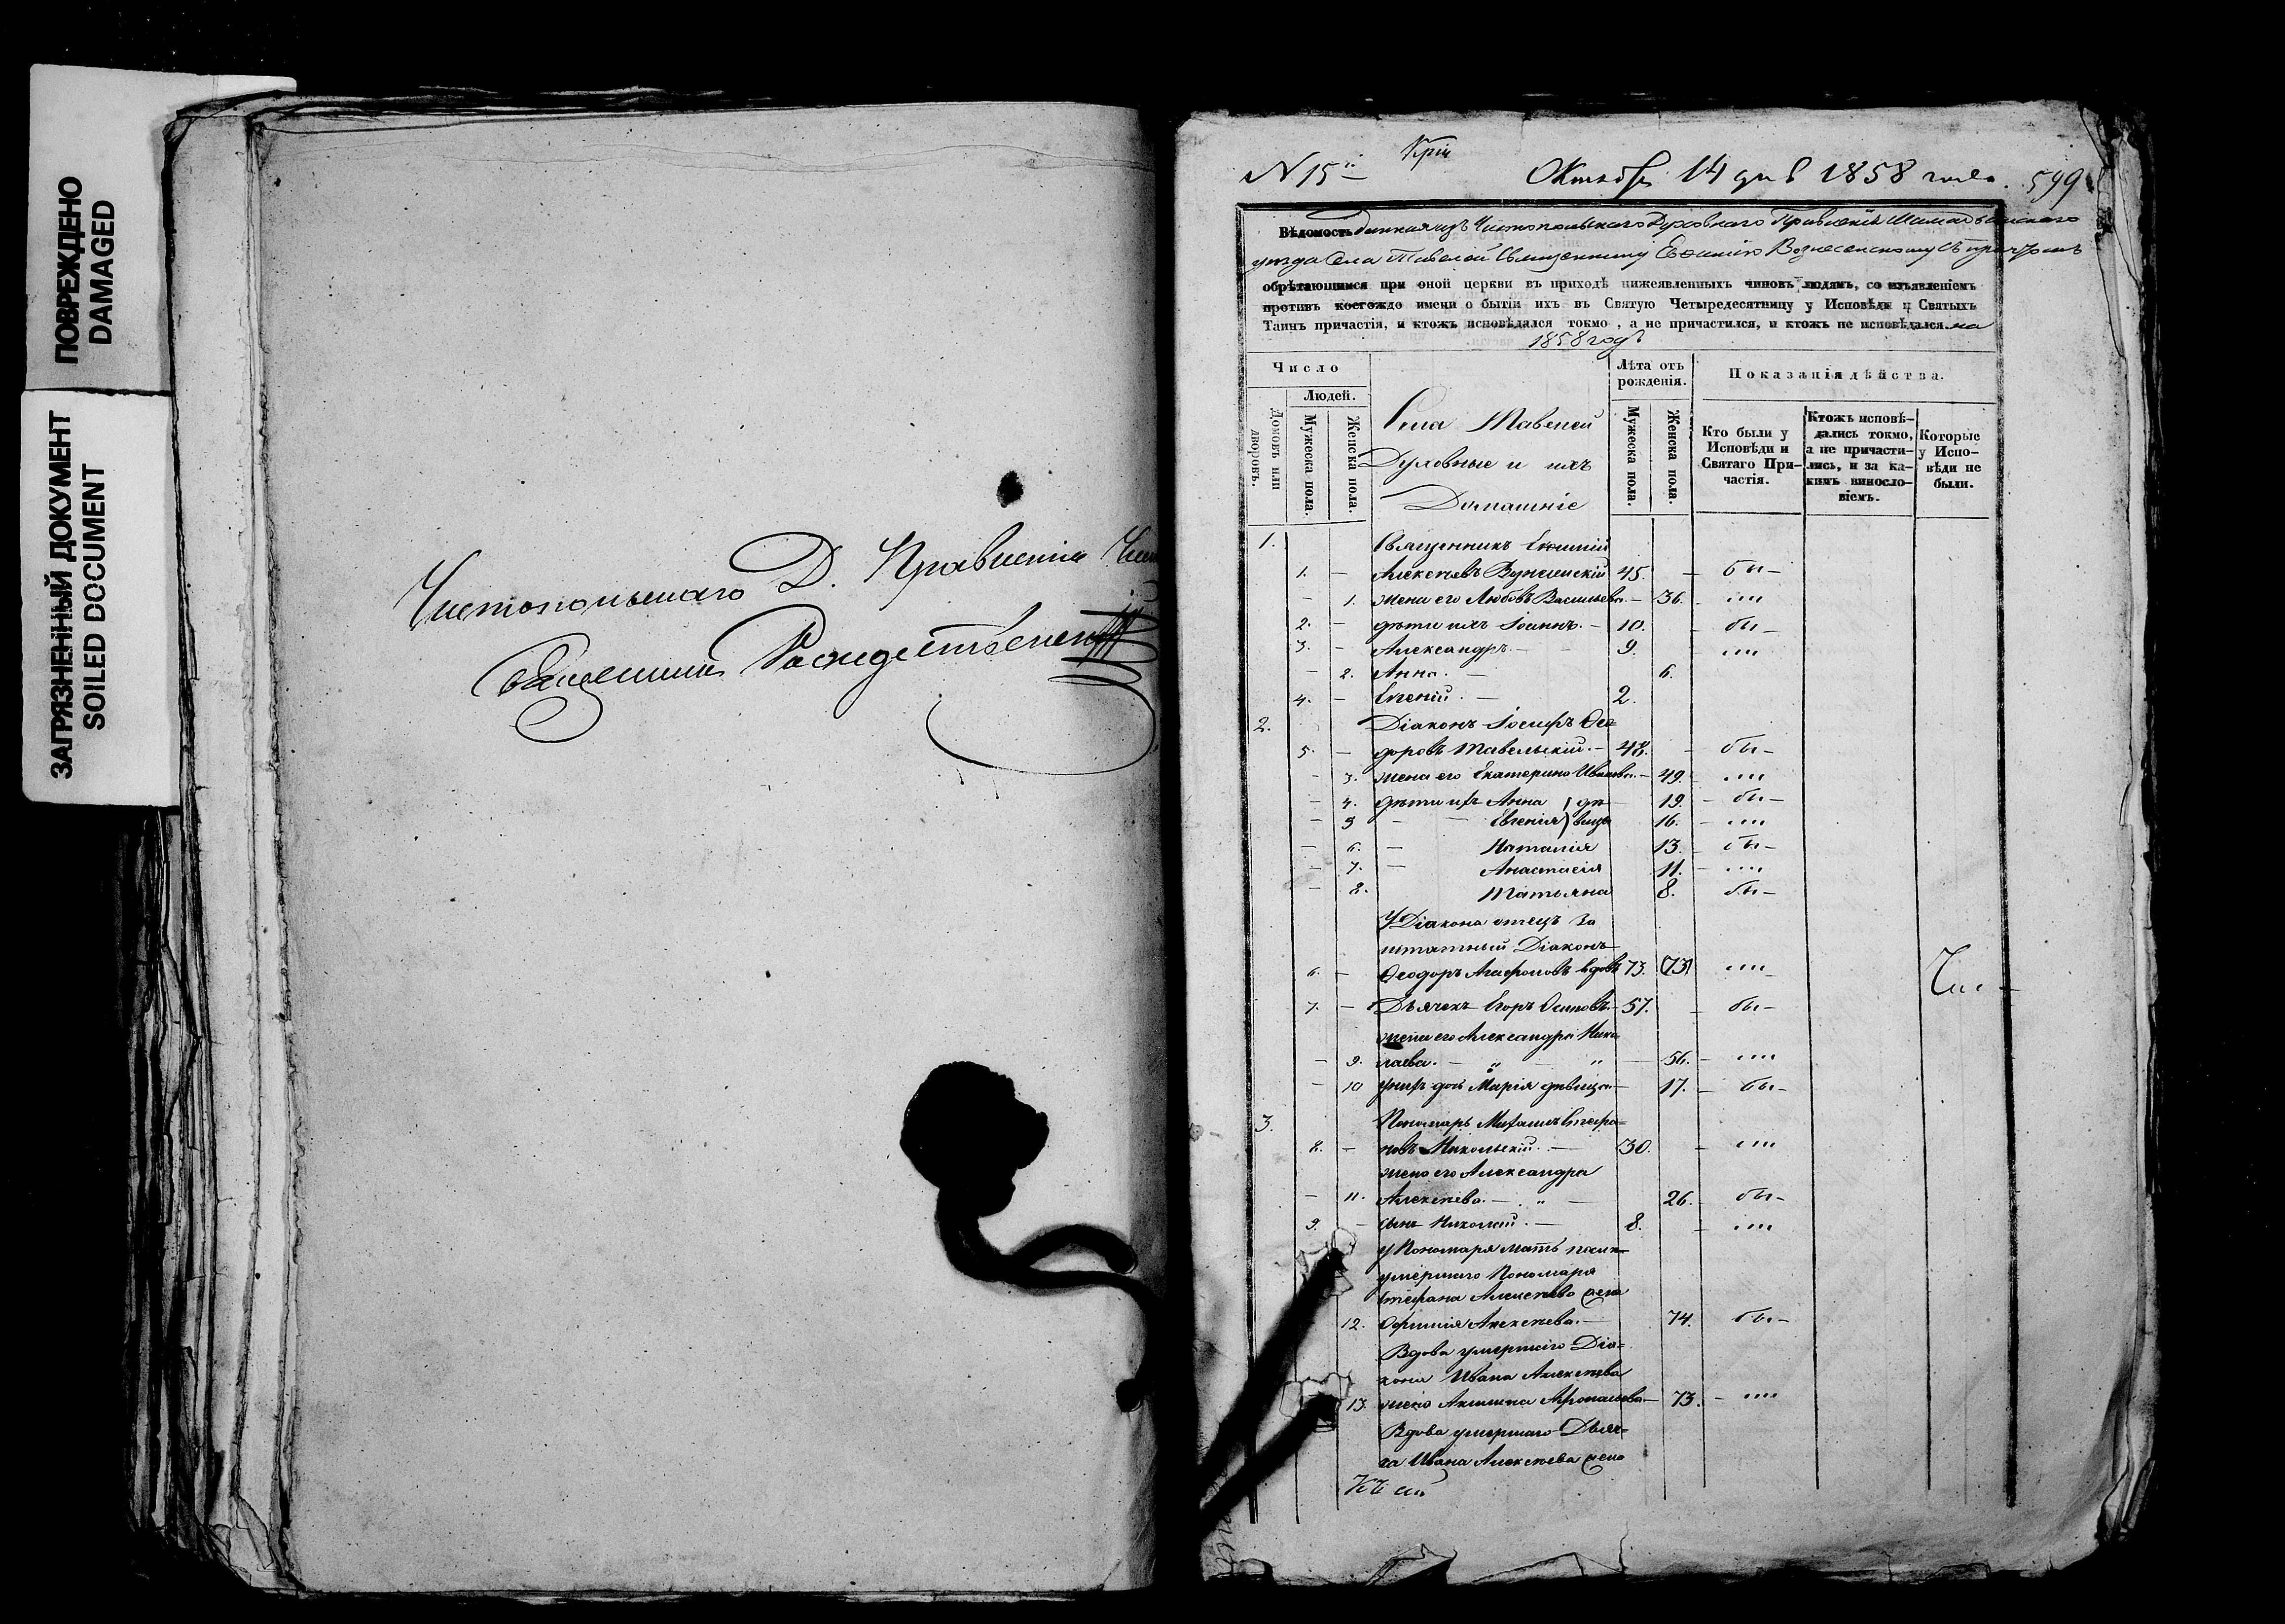 ПОВРЕЖДЕНО
DAMAGED
ЗАГРЯЗНЕННЫЙ ДОКУМЕНТ
SOILED DOCUMENT
Чистопольскаго Д. Правленія
N 15
14 дня 1858 года. 599
Вѣдомость данная изъ Чистопольскаго Духовнаго Правленія Мамадышскаго
уѣзда Села Тавелей Священнику Евѳимію Вознесенскому съ причтомъ
обрѣтающимся при оной церкви въ приходѣ нижеявленныхъ чиновъ людямъ, со изъявленіемъ
противъ коегождо имени о бытіи ихъ въ Святую Четыредесятницу у Исповѣди и Святыхъ
Таинъ причастія, и ктожъ исповѣдался токмо, а не причастился, и ктожъ не исповѣдался на
1858 годъ
Число
Людей.
Домовъ или дворовъ.
Мужеска пола.
Женска пола.
Села Тавелей
Духовные и ихъ
Домашніе
Лѣта отъ рожденія.
Мужеска пола.
Женска пола.
Показанія дѣйства.
Кто были у Исповѣди и Святаго Причастія.
Ктожъ исповѣдались токмо, а не причастились, и за какимъ винословіемъ.
Которые у Исповѣди не были.
1. Священникъ Евѳимій
1. — Алексѣевъ Вознесенскій 45. — бы —
— 1. жена его Любовь Васильева — 36. — ""
2. — дѣти ихъ Іоаннъ. — 10. — бы —
3. — Александръ — 9. — ""
— 2. Анна. — 6.
4. — Евгеній. — 2.
2. Діаконъ Іосифъ Ѳео=
5. — доровъ Тавельскій. — 48. — бы —
— 3. жена его Екатерина Иванова — 49. — ""
— 4. дѣти ихъ Анна } дѣ 19. — бы —
— 5 Евгенія } вицы 16. — ""
— 6. — Наталія 13. — бы —
— 7. — Анастасія 11. — ""
— 8. Татьяна 8. бы —
У Діакона отецъ за
штатный Діаконъ
6. — Ѳеодоръ Агафоновъ вдовъ 73. (73) ""
7. — Дьячекъ Егоръ Осиповъ. — 57. — бы —
жена его Александра Нико
— 9. лаева. — " — " — 56. — ""
— 10 у нихъ дочь Марія дѣвица — 17. — бы —
3. Пономарь Михаилъ Стефа=
8. — новъ Никольскій. — 30. — ""
жена его Александра
— 11. Алексѣева. — " — 26. — бы —
9. — сынъ Николай. — 8. — ""
у Пономаря мать
умершаго Пономаря
Стефана Алексѣева жена
12. Алексѣева. — 74. бы —
Вдова умершаго Діа=
кона Ивана Алексѣева
13. жена Акилина — 73. — ""
Вдова умершаго Дьяч=
ка Ивана Алексѣева жена
Къ сей